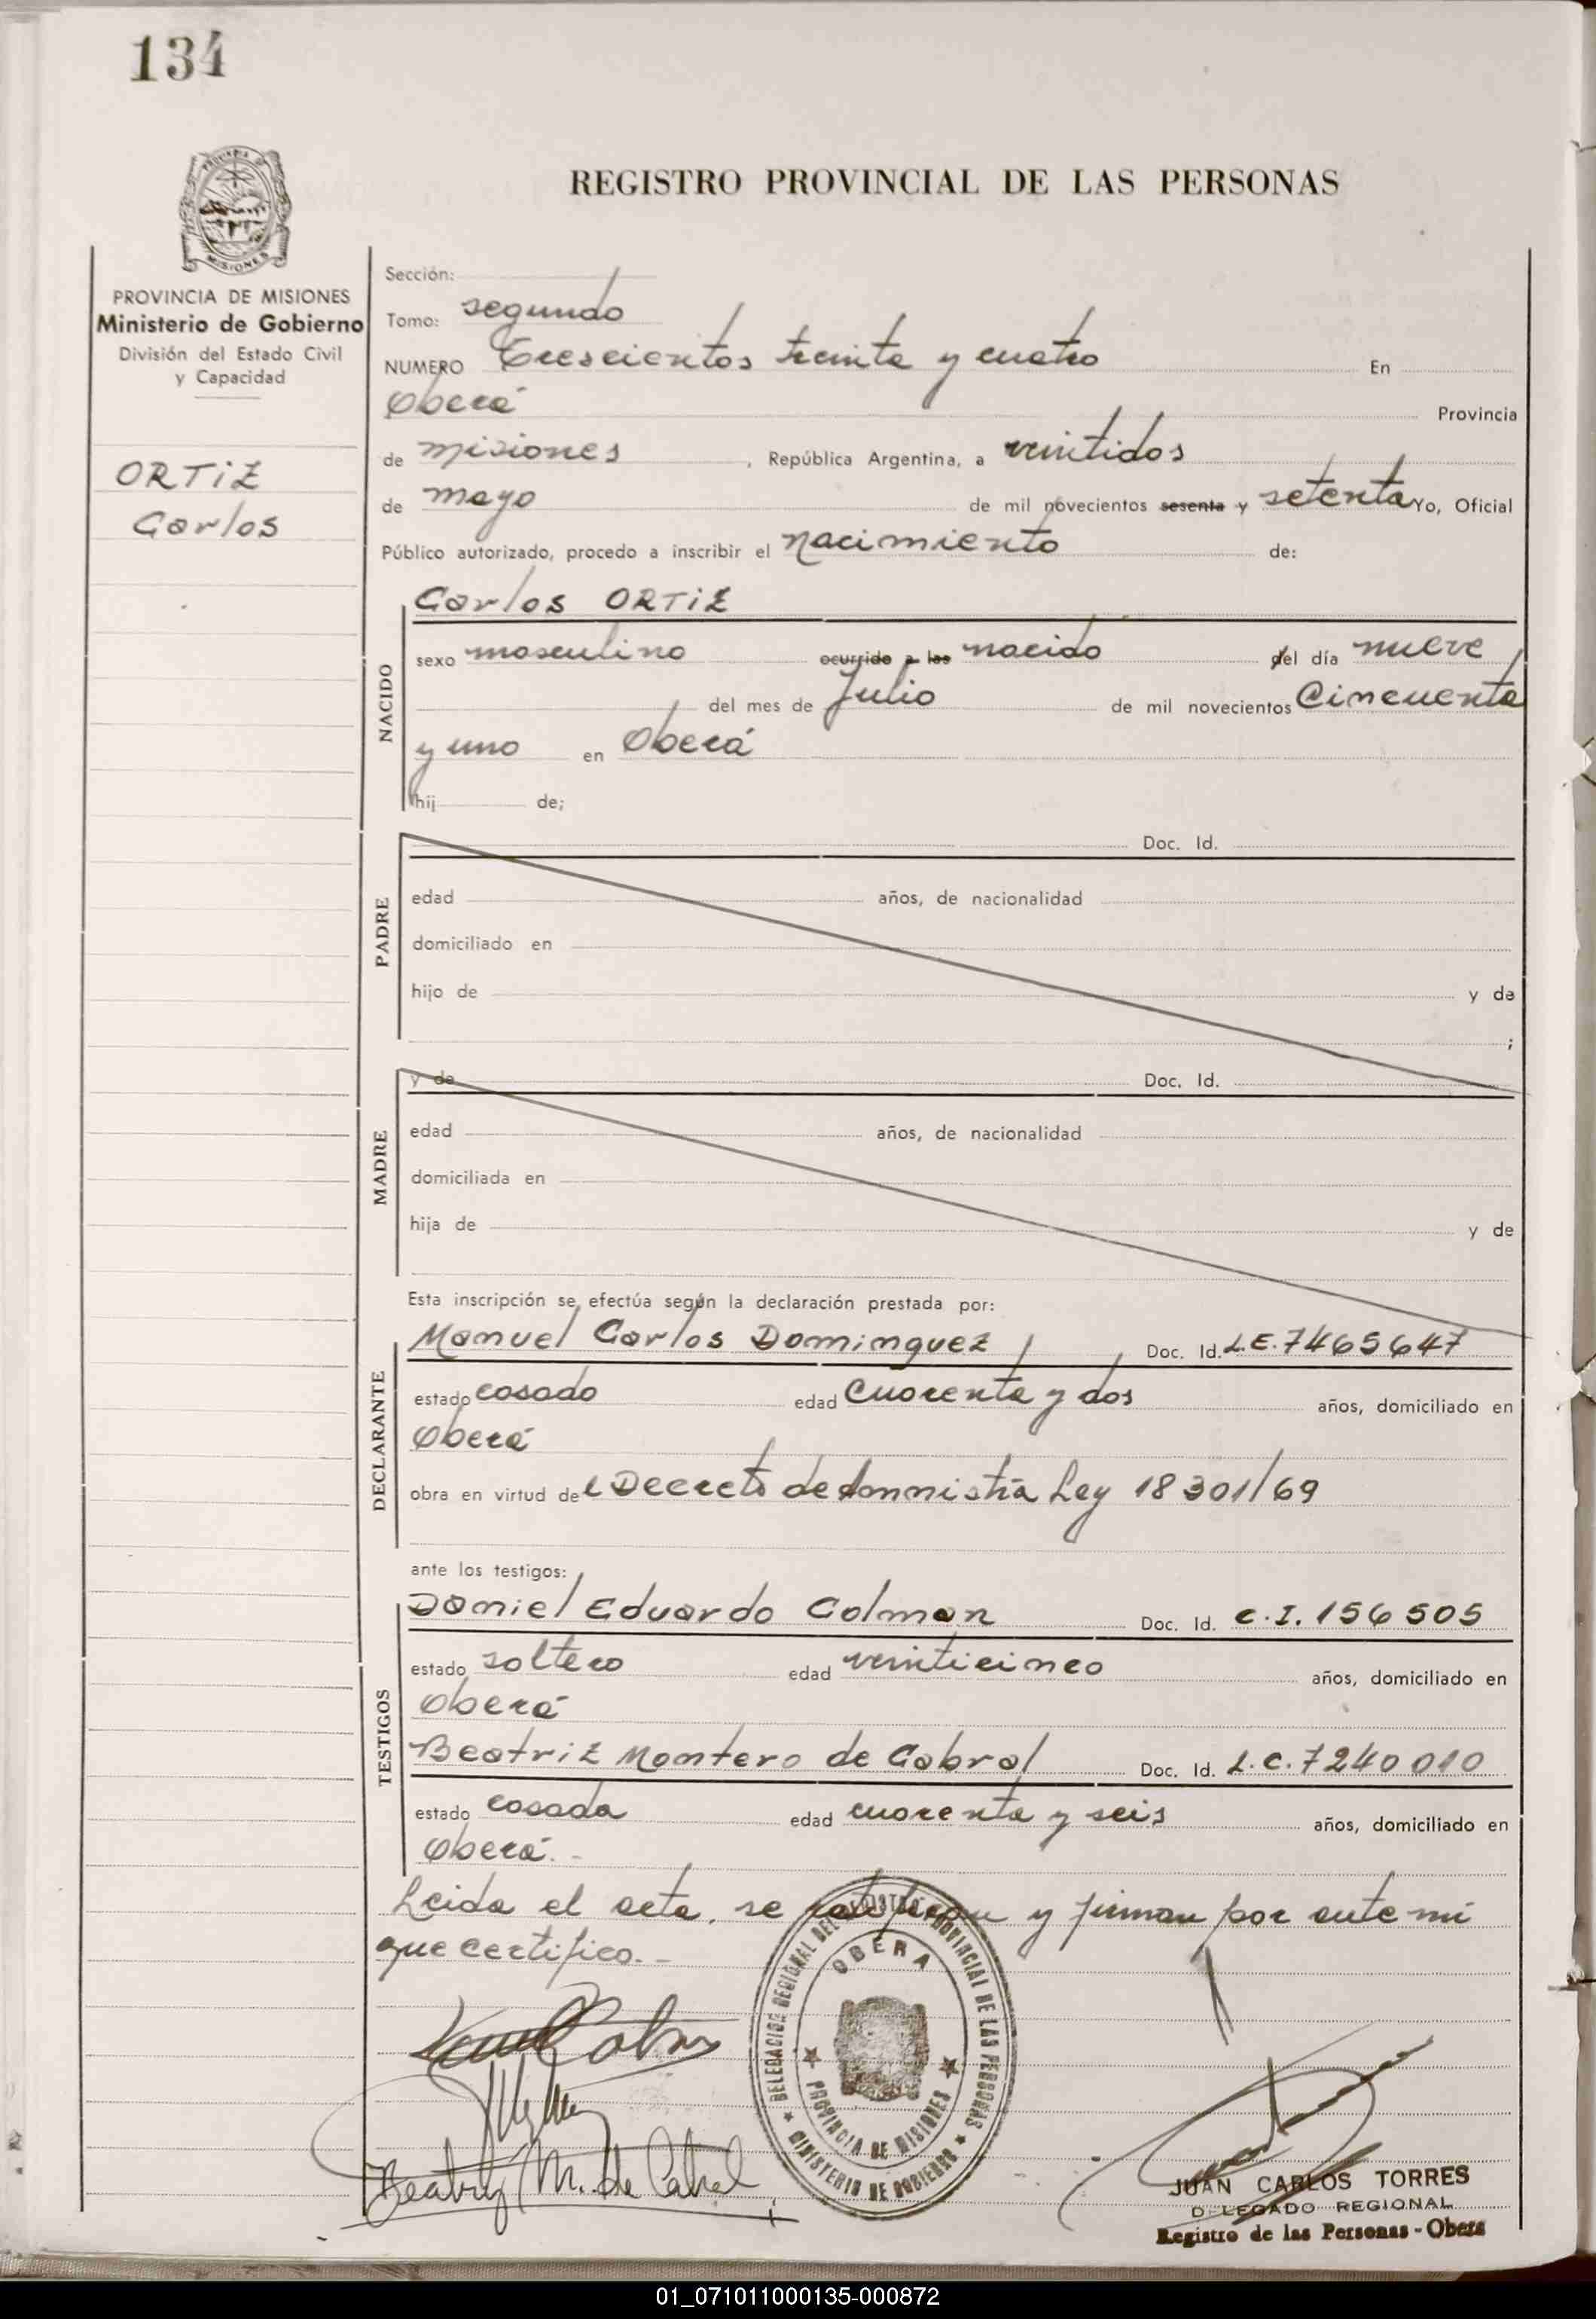 134
REGISTRO PROVINCIAL DE LAS PERSONAS
MISIONES
PROVINCIA DE MISIONES
Ministerio de Gobierno
División del Estado Civil
y Capacidad
ORTIZ
Carlos
Sección:
Tomo: segundo
NUMERO Trescientos treinta y cuatro En
Oberá Provincia
de misiones, República Argentina, a veintidos
de mayo de mil novecientos sesenta y setenta Yo, Oficial
Público autorizado, procedo a inscribir el nacimiento de:
NACIDO
Carlos ORTIZ
sexo masculino ocurrido a las nacido del día nueve
del mes de Julio de mil novecientos Cincuenta
y uno en Oberá
hij de;
PADRE
Doc. Id.
edad años, de nacionalidad
domiciliado en
hijo de y de
;
MADRE
y de Doc. Id.
edad años, de nacionalidad
domiciliada en
hija de y de
Esta inscripción se efectúa según la declaración prestada por:
DECLARANTE
Manuel Carlos Dominguez Doc. Id. L.E. 7465647
estado casado edad Cuarenta y dos años, domiciliado en
Oberá
obra en virtud del Decreto de Ammistia Ley 18301/69
ante los testigos:
TESTIGOS
Daniel Eduardo Colman Doc. Id. C.I. 156505
estado soltero edad veinticinco años, domiciliado en
Oberá
Beatriz Montero de Cabral Doc. Id. L.C. 7240010
estado casada edad cuarenta y seis años, domiciliado en
Oberá.-
Leida el acta, se ratifican y firman por ante mi
que certifico.-
DELEGACION REGIONAL DEL REGISTRO PROVINCIAL DE LAS PERSONAS
OBERA
PROVINCIA DE MISIONES
MINISTERIO DE GOBIERNO
Beatriz M. de Cabral
JUAN CARLOS TORRES
DELEGADO REGIONAL
Registro de las Personas - Oberá
01_071011000135-000872